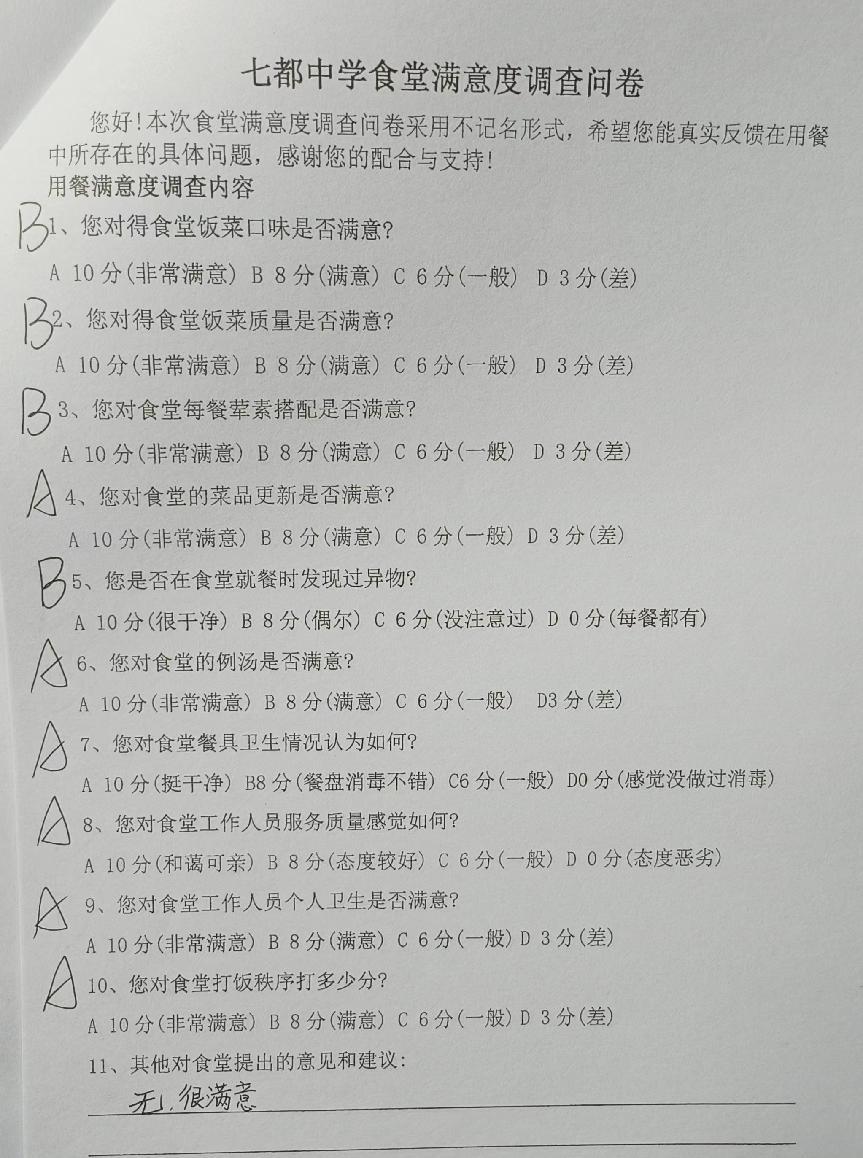 七都中学食堂满意度调查问卷
您好!本次食堂满意度调查问卷采用不记名形式，希望您能真实反馈在用餐
中所存在的具体问题，感谢您的配合与支持!
用餐满意度调查内容
B 1、您对得食堂饭菜口味是否满意?
A 10分(非常满意) B 8分(满意) C 6分(一般) D 3分(差)
B 2、您对得食堂饭菜质量是否满意?
A 10分(非常满意) B 8分(满意) C 6分(一般) D 3分(差)
B 3、您对食堂每餐荤素搭配是否满意?
A 10分(非常满意) B 8分(满意) C 6分(一般) D 3分(差)
A 4、您对食堂的菜品更新是否满意?
A 10分(非常满意) B 8分(满意) C 6分(一般) D 3分(差)
B 5、您是否在食堂就餐时发现过异物?
A 10分(很干净) B 8分(偶尔) C 6分(没注意过) D 0分(每餐都有)
A 6、您对食堂的例汤是否满意?
A 10分(非常满意) B 8分(满意) C 6分(一般) D3分(差)
A 7、您对食堂餐具卫生情况认为如何?
A 10分(挺干净) B8分(餐盘消毒不错) C6分(一般) D0分(感觉没做过消毒)
A 8、您对食堂工作人员服务质量感觉如何?
A 10分(和蔼可亲) B 8分(态度较好) C 6分(一般) D 0分(态度恶劣)
A 9、您对食堂工作人员个人卫生是否满意?
A 10分(非常满意) B 8分(满意) C 6分(一般) D 3分(差)
A 10、您对食堂打饭秩序打多少分?
A 10分(非常满意) B 8分(满意) C 6分(一般) D 3分(差)
11、其他对食堂提出的意见和建议:
无，很满意